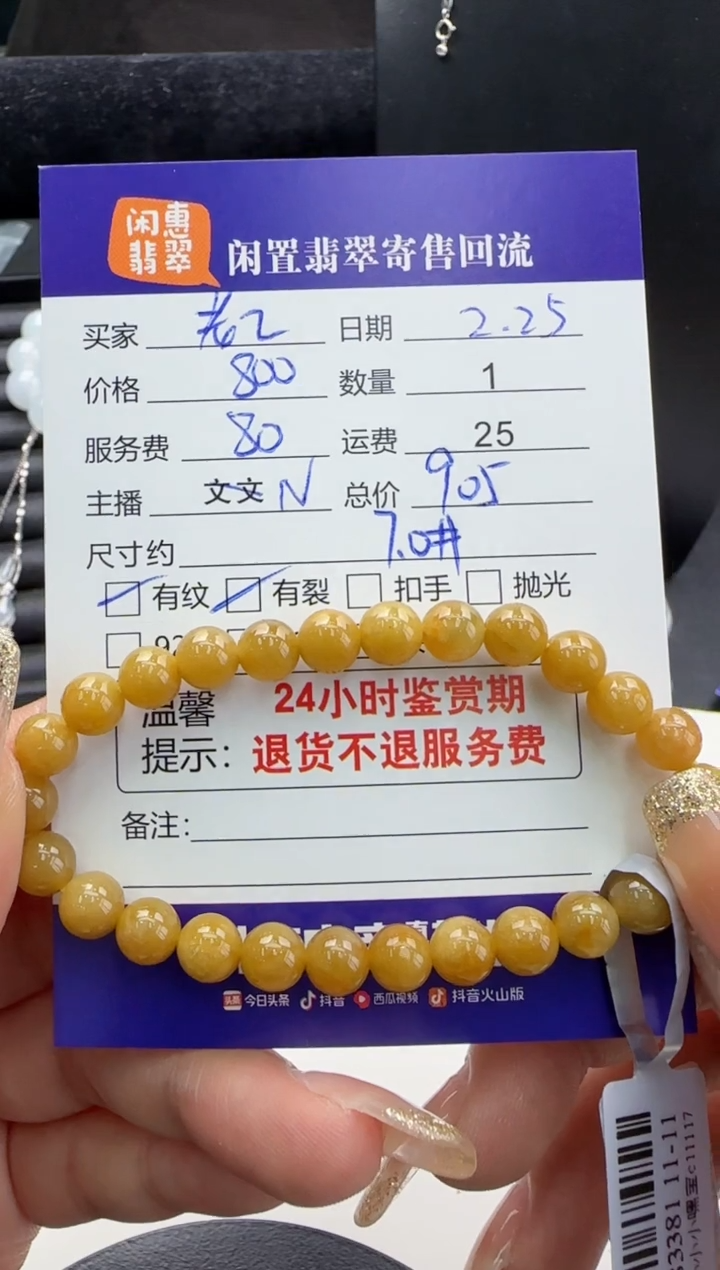 闲惠
翡翠
闲置翡翠寄售回流
买家 #62 日期 2.25
价格 800 数量 1
服务费 80 运费 25
主播 文文 N 总价 905
尺寸约 7.0#
有纹 有裂 扣手 抛光
温馨 24小时鉴赏期
提示: 退货不退服务费
备注:
头条 今日头条 抖音 西瓜视频 抖音火山版
3381 11-11
小小嘿宝c11117